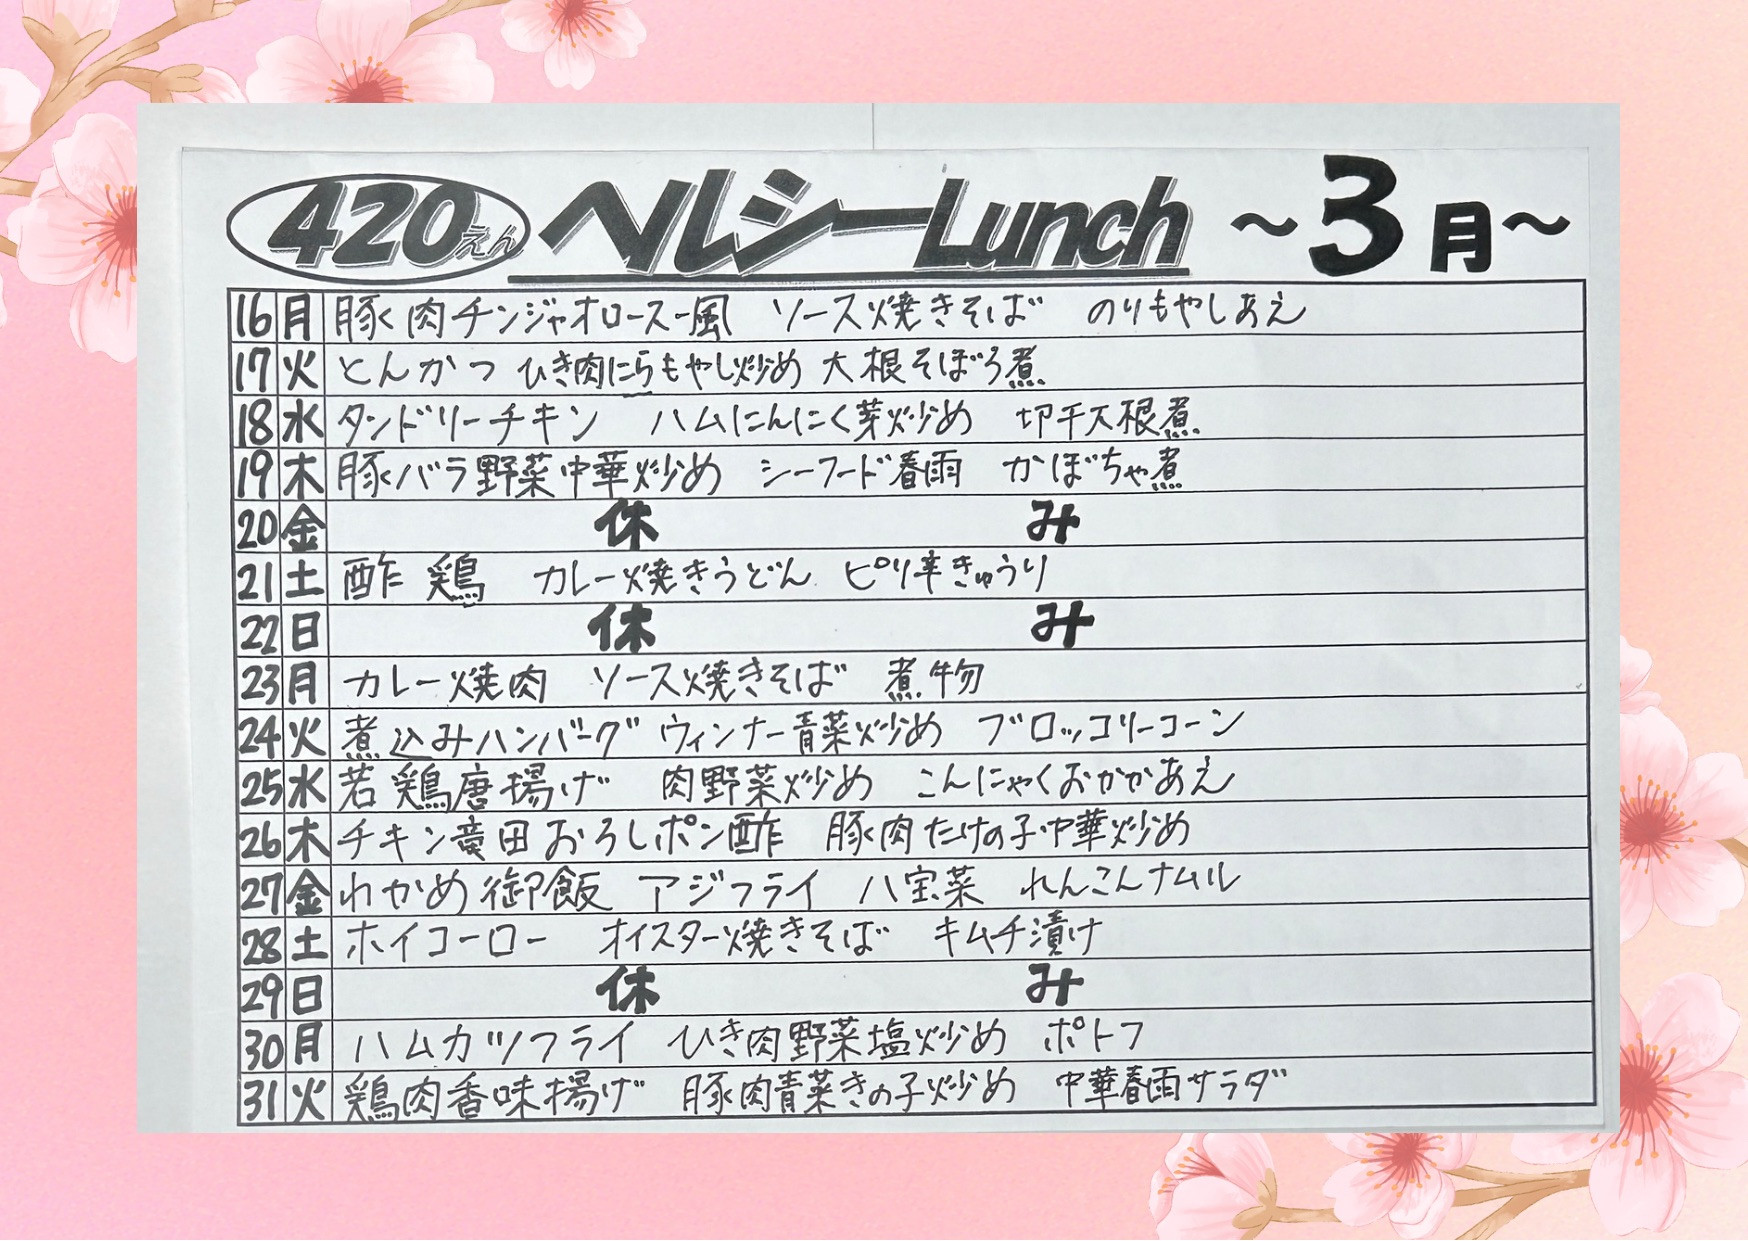 420えん ヘルシーLunch ～3月～
16 月 豚肉チンジャオロースー風 ソース焼きそば のりもやしあえ
17 火 とんかつ ひき肉にらもやし炒め 大根そぼろ煮
18 水 タンドリーチキン ハムにんにく芽炒め 切干大根煮
19 木 豚バラ野菜中華炒め シーフード春雨 かぼちゃ煮
20 金 休み
21 土 酢鶏 カレー焼きうどん ピリ辛きゅうり
22 日 休み
23 月 カレー焼肉 ソース焼きそば 煮物
24 火 煮込みハンバーグ ウィンナー青菜炒め ブロッコリーコーン
25 水 若鶏唐揚げ 肉野菜炒め こんにゃくおかかあえ
26 木 チキン竜田おろしポン酢 豚肉たけの子中華炒め
27 金 わかめ御飯 アジフライ 八宝菜 れんこんナムル
28 土 ホイコーロー オイスター焼きそば キムチ漬け
29 日 休み
30 月 ハムカツフライ ひき肉野菜塩炒め ポトフ
31 火 鶏肉香味揚げ 豚肉青菜きの子炒め 中華春雨サラダ